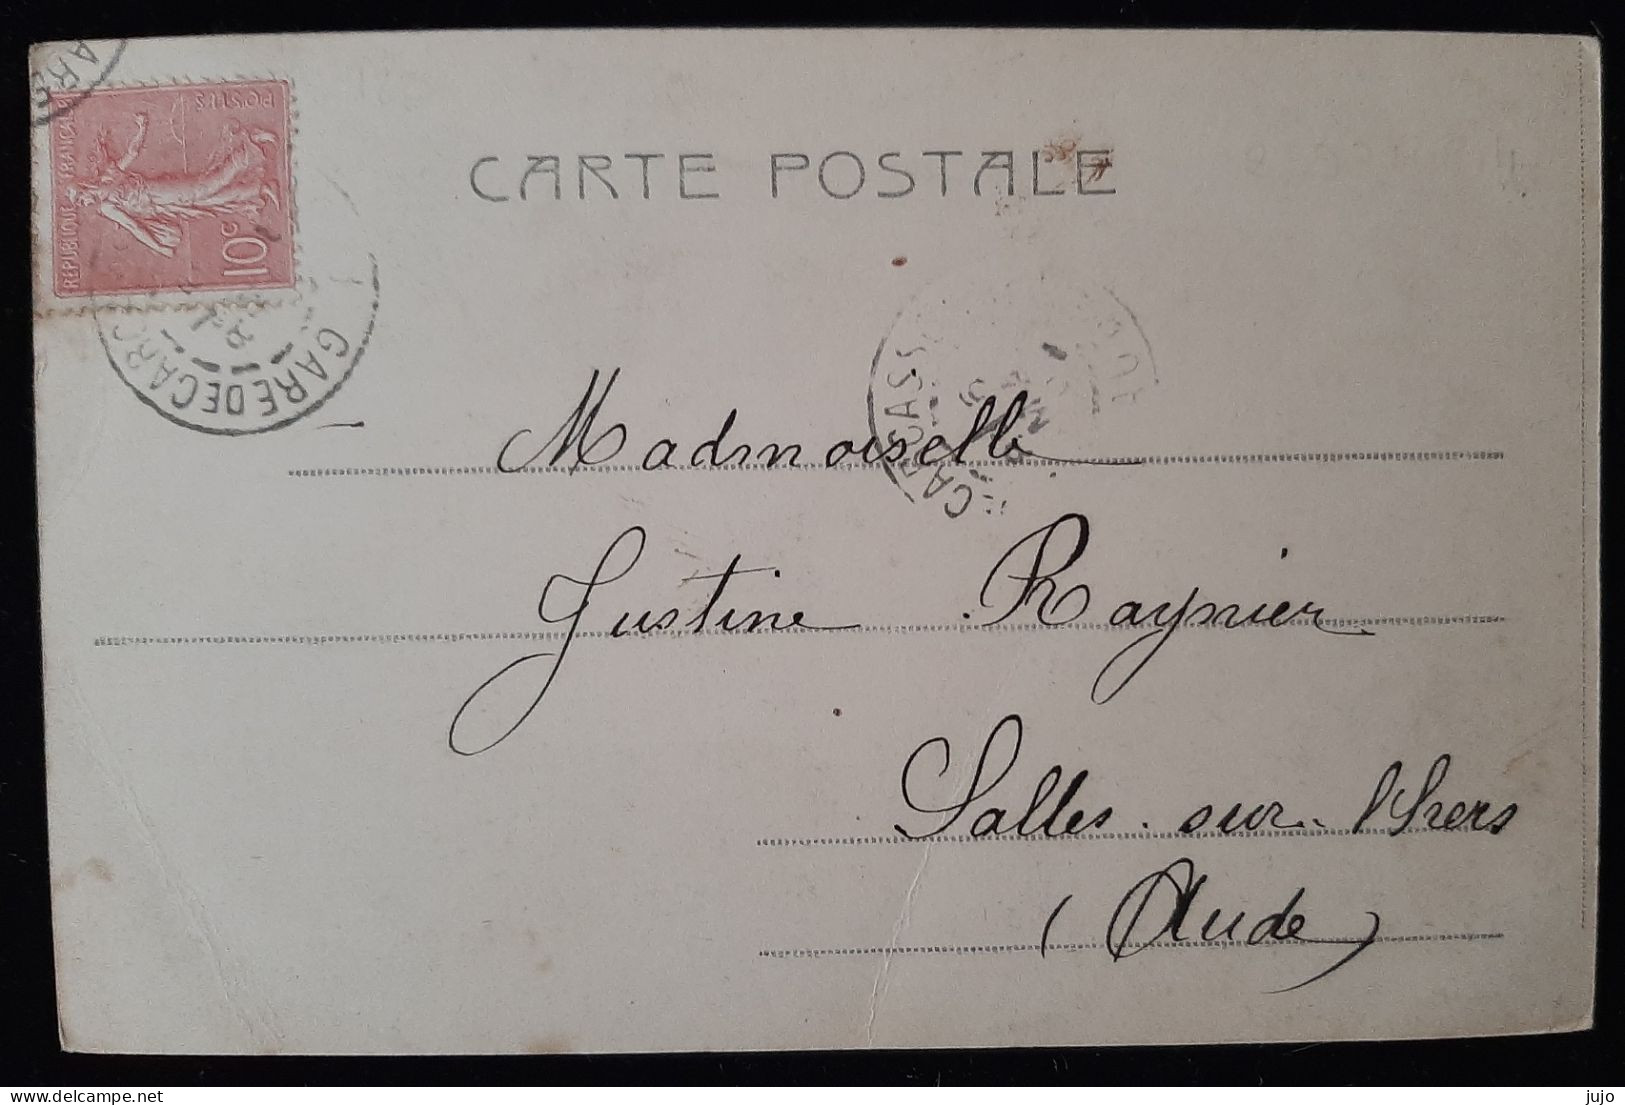 CARTE POSTALE
POSTES
REPUBLIQUE FRANÇAISE
10c
GARE DE CARC
CARCASS
Madmoiselle
Justine Raynier
Salles-sur-l'hers
(Aude)
jujo